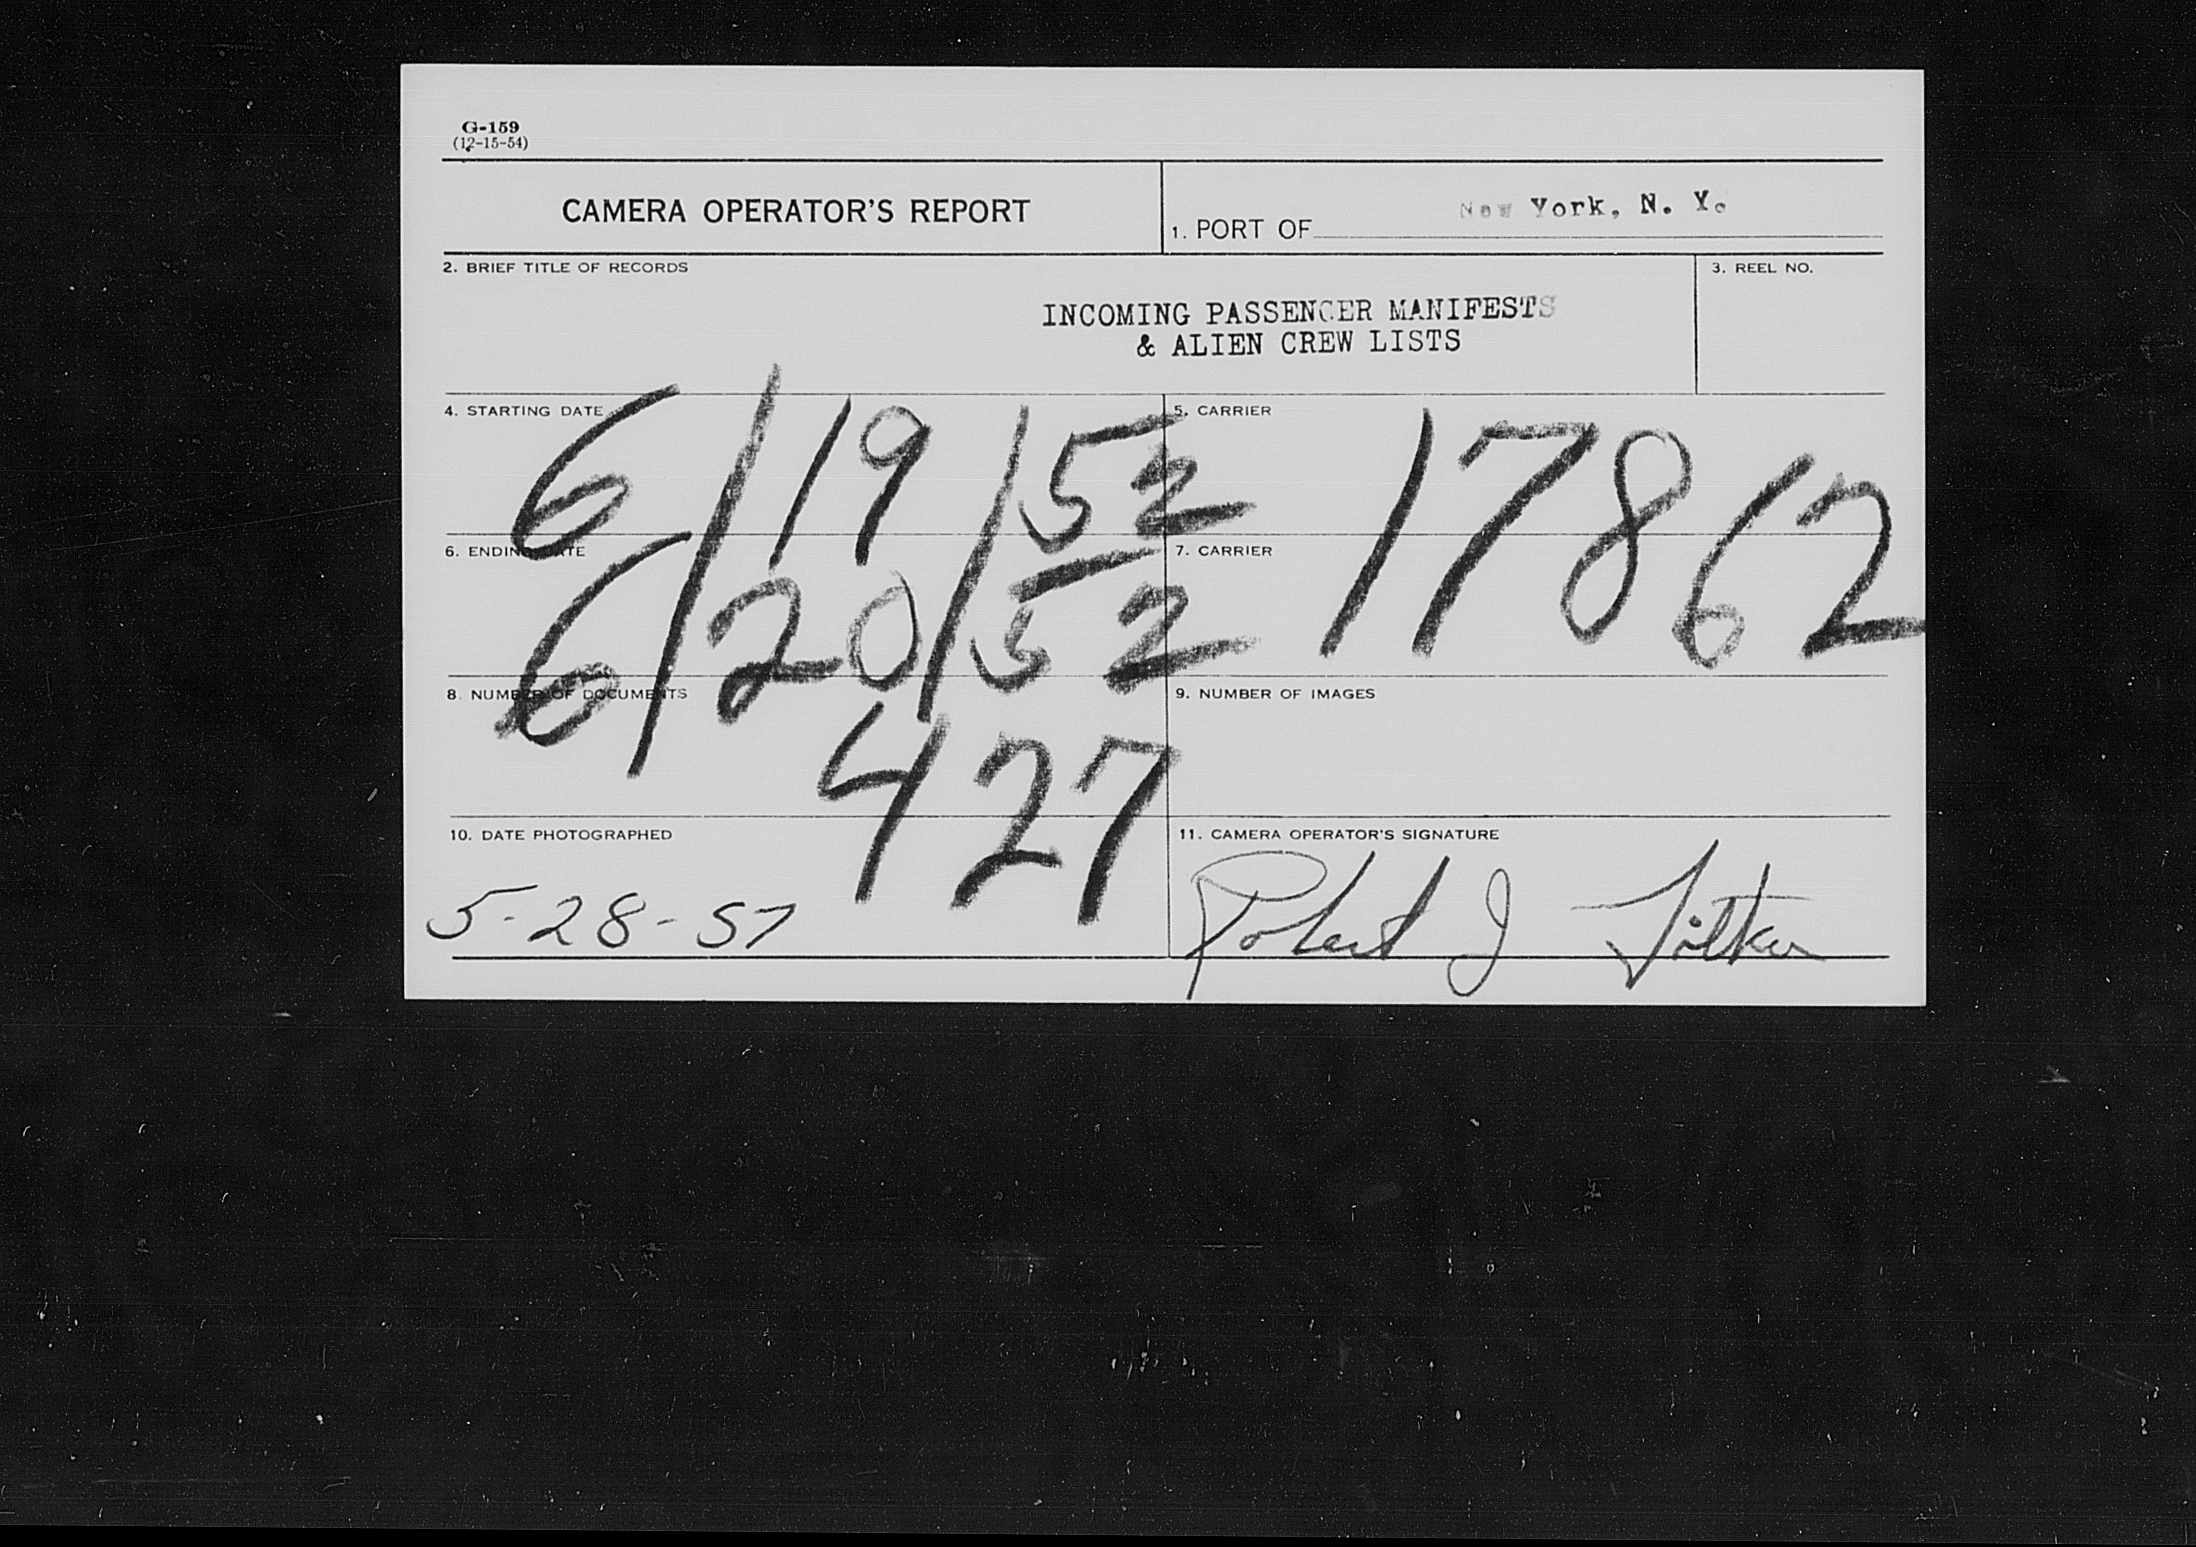 G-159
(12-15-54)
CAMERA OPERATOR'S REPORT
1. PORT OF New York, N. Y.
2. BRIEF TITLE OF RECORDS
INCOMING PASSENGER MANIFESTS
& ALIEN CREW LISTS
3. REEL NO.
4. STARTING DATE
6/19/52
5. CARRIER
17862
6. ENDING DATE
6/20/52
7. CARRIER
8. NUMBER OF DOCUMENTS
427
9. NUMBER OF IMAGES
10. DATE PHOTOGRAPHED
5-28-57
11. CAMERA OPERATOR'S SIGNATURE
Robert J